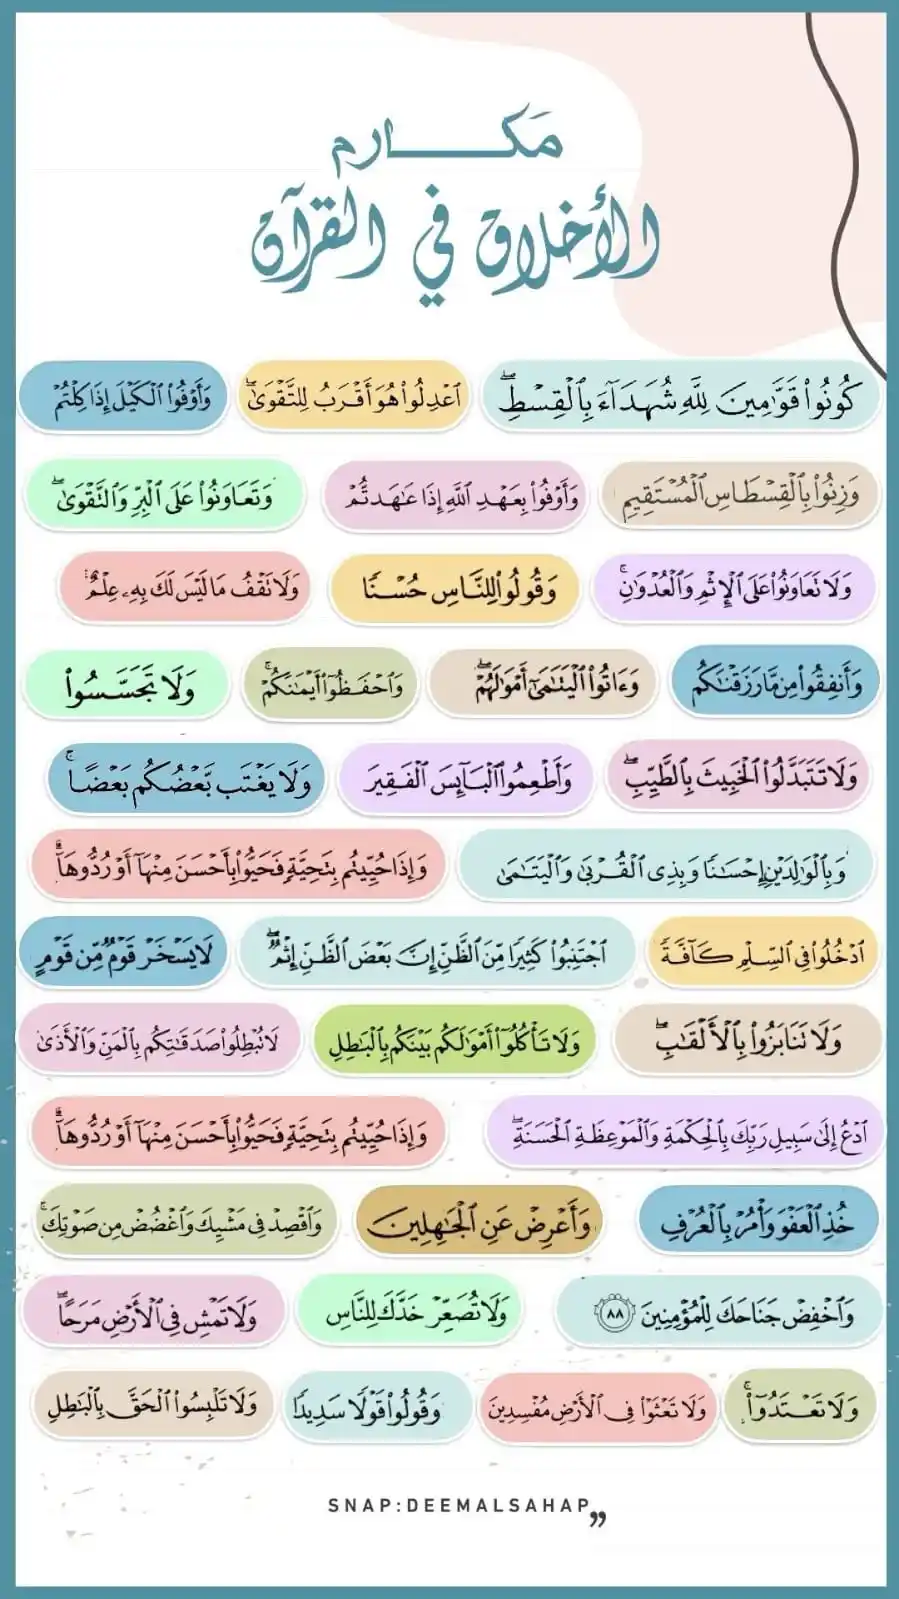 مكارم
الأخلاق في القرآن
كُونُوا۟ قَوَّٰمِينَ لِلَّهِ شُهَدَآءَ بِٱلْقِسْطِ ۖ
ٱعْدِلُوا۟ هُوَ أَقْرَبُ لِلتَّقْوَىٰ ۖ
وَأَوْفُوا۟ ٱلْكَيْلَ إِذَا كِلْتُمْ
وَزِنُوا۟ بِٱلْقِسْطَاسِ ٱلْمُسْتَقِيمِ
وَأَوْفُوا۟ بِعَهْدِ ٱللَّهِ إِذَا عَٰهَدتُّمْ
وَتَعَاوَنُوا۟ عَلَى ٱلْبِرِّ وَٱلتَّقْوَىٰ ۖ
وَلَا تَعَاوَنُوا۟ عَلَى ٱلْإِثْمِ وَٱلْعُدْوَٰنِ ۚ
وَقُولُوا۟ لِلنَّاسِ حُسْنًا
وَلَا تَقْفُ مَا لَيْسَ لَكَ بِهِۦ عِلْمٌ ۚ
وَأَنفِقُوا۟ مِن مَّا رَزَقْنَٰكُم
وَءَاتُوا۟ ٱلْيَتَٰمَىٰٓ أَمْوَٰلَهُمْ ۖ
وَٱحْفَظُوٓا۟ أَيْمَٰنَكُمْ ۚ
وَلَا تَجَسَّسُوا۟
وَلَا تَتَبَدَّلُوا۟ ٱلْخَبِيثَ بِٱلطَّيِّبِ ۖ
وَأَطْعِمُوا۟ ٱلْبَآئِسَ ٱلْفَقِيرَ
وَلَا يَغْتَب بَّعْضُكُم بَعْضًا ۚ
وَبِٱلْوَٰلِدَيْنِ إِحْسَانًا وَبِذِى ٱلْقُرْبَىٰ وَٱلْيَتَٰمَىٰ
وَإِذَا حُيِّيتُم بِتَحِيَّةٍ فَحَيُّوا۟ بِأَحْسَنَ مِنْهَآ أَوْ رُدُّوهَآ ۗ
ٱدْخُلُوا۟ فِى ٱلسِّلْمِ كَآفَّةً
ٱجْتَنِبُوا۟ كَثِيرًا مِّنَ ٱلظَّنِّ إِنَّ بَعْضَ ٱلظَّنِّ إِثْمٌ ۖ
لَا يَسْخَرْ قَوْمٌ مِّن قَوْمٍ
وَلَا تَنَابَزُوا۟ بِٱلْأَلْقَٰبِ ۖ
وَلَا تَأْكُلُوٓا۟ أَمْوَٰلَكُم بَيْنَكُم بِٱلْبَٰطِلِ
لَا تُبْطِلُوا۟ صَدَقَٰتِكُم بِٱلْمَنِّ وَٱلْأَذَىٰ
ٱدْعُ إِلَىٰ سَبِيلِ رَبِّكَ بِٱلْحِكْمَةِ وَٱلْمَوْعِظَةِ ٱلْحَسَنَةِ ۖ
وَإِذَا حُيِّيتُم بِتَحِيَّةٍ فَحَيُّوا۟ بِأَحْسَنَ مِنْهَآ أَوْ رُدُّوهَآ ۗ
خُذِ ٱلْعَفْوَ وَأْمُرْ بِٱلْعُرْفِ
وَأَعْرِضْ عَنِ ٱلْجَٰهِلِينَ
وَٱقْصِدْ فِى مَشْيِكَ وَٱغْضُضْ مِن صَوْتِكَ ۚ
وَٱخْفِضْ جَنَاحَكَ لِلْمُؤْمِنِينَ ٨٨
وَلَا تُصَعِّرْ خَدَّكَ لِلنَّاسِ
وَلَا تَمْشِ فِى ٱلْأَرْضِ مَرَحًا ۖ
وَلَا تَعْتَدُوٓا۟ ۚ
وَلَا تَعْثَوْا۟ فِى ٱلْأَرْضِ مُفْسِدِينَ
وَقُولُوا۟ قَوْلًا سَدِيدًا
وَلَا تَلْبِسُوا۟ ٱلْحَقَّ بِٱلْبَٰطِلِ
SNAP:DEEMALSAHAP,,